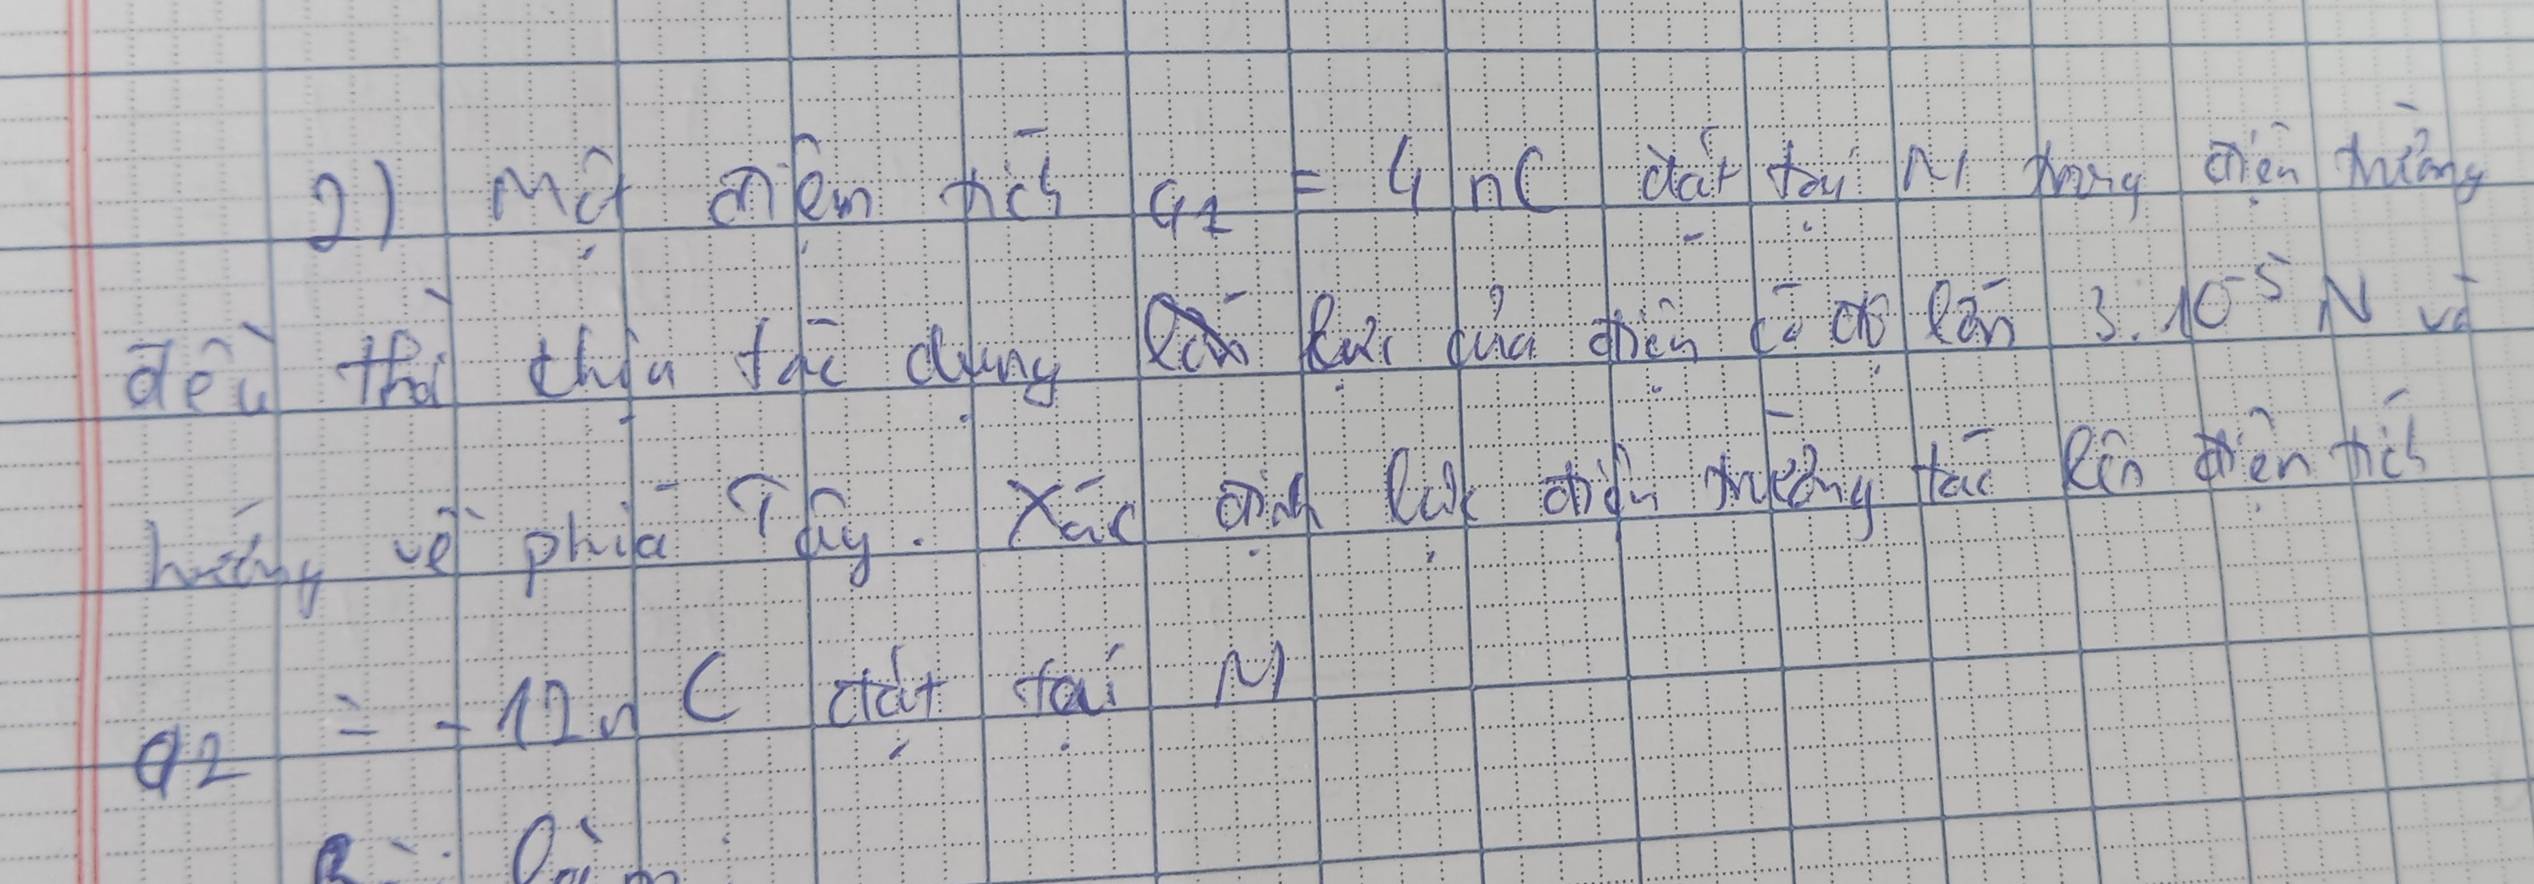 2) Một điểm tích q1 = 4 nC đặt tại M trong điện trường
đều thì chịu tác dụng lực của điện có độ lớn 3. 10^-5 N và
hướng về phía Tây. Xác định lực điện trường tác lên điện tích
q2 = - 12 n C đặt tại M
Bài làm